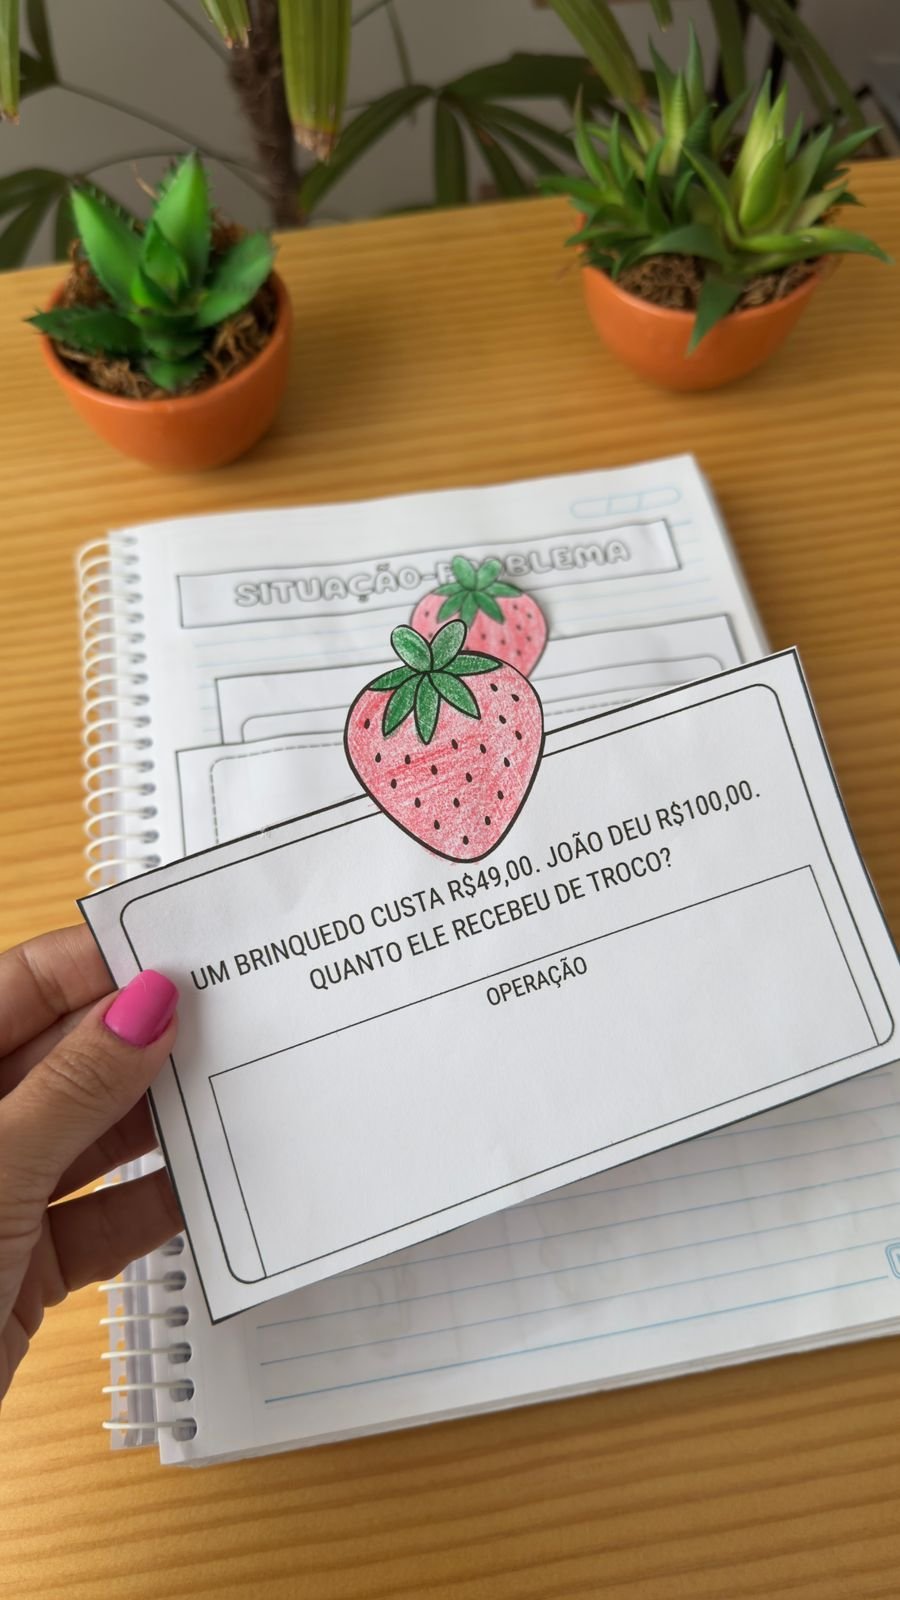 SITUAÇÃO-PROBLEMA
UM BRINQUEDO CUSTA R$49,00. JOÃO DEU R$100,00.
QUANTO ELE RECEBEU DE TROCO?
OPERAÇÃO